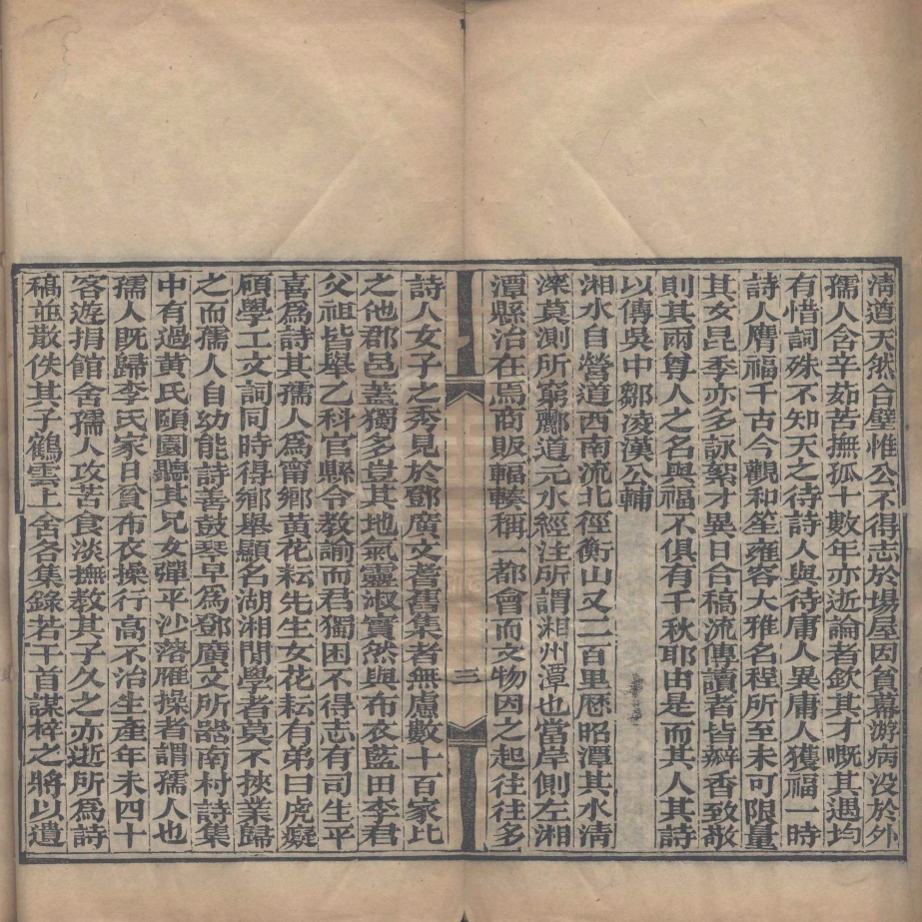 清遒天然合璧惟公不得志於場屋因貧幕游病没於外
孺人含辛茹苦撫孤十數年亦逝論者欽其才嘅其遇均
有惜詞殊不知天之待詩人與待庸人異庸人獲福一時
詩人膺福千古今觀和笙雍容大雅名程所至未可限量
其女昆季亦多詠絮才異日合稿流傳讀者皆瓣香致敬
則其兩尊人之名與福不俱有千秋耶由是而其人其詩
以傳吳中鄒淩漢公輔
湘水自營道西南流北徑衡山又二百里歷昭潭其水清
深莫測所窮酈道元水經注所謂湘州潭也當岸側左湘
潭縣治在焉商販輻輳稱一都會而文物因之起往往多
三
詩人女子之秀見於鄧廣文耆舊集者無慮數十百家比
之他郡邑蓋獨多豈其地氣靈淑實然與布衣藍田李君
父祖皆舉乙科官縣令教諭而君獨困不得志有司生平
喜爲詩其孺人爲甯鄉黃花耘先生女花耘有弟曰虎癡
碩學工文詞同時得鄉舉顯名湖湘閒學者莫不挾業歸
之而孺人自幼能詩善鼓琴早爲鄧廣文所器南村詩集
中有過黃氏頤園聽其兄女彈平沙落雁操者謂孺人也
孺人既歸李氏家日貧布衣操行高不治生產年未四十
客遊捐館舍孺人攻苦食淡撫教其子久之亦逝所爲詩
稿並散佚其子鶴雲上舍各集錄若干首謀梓之將以遺